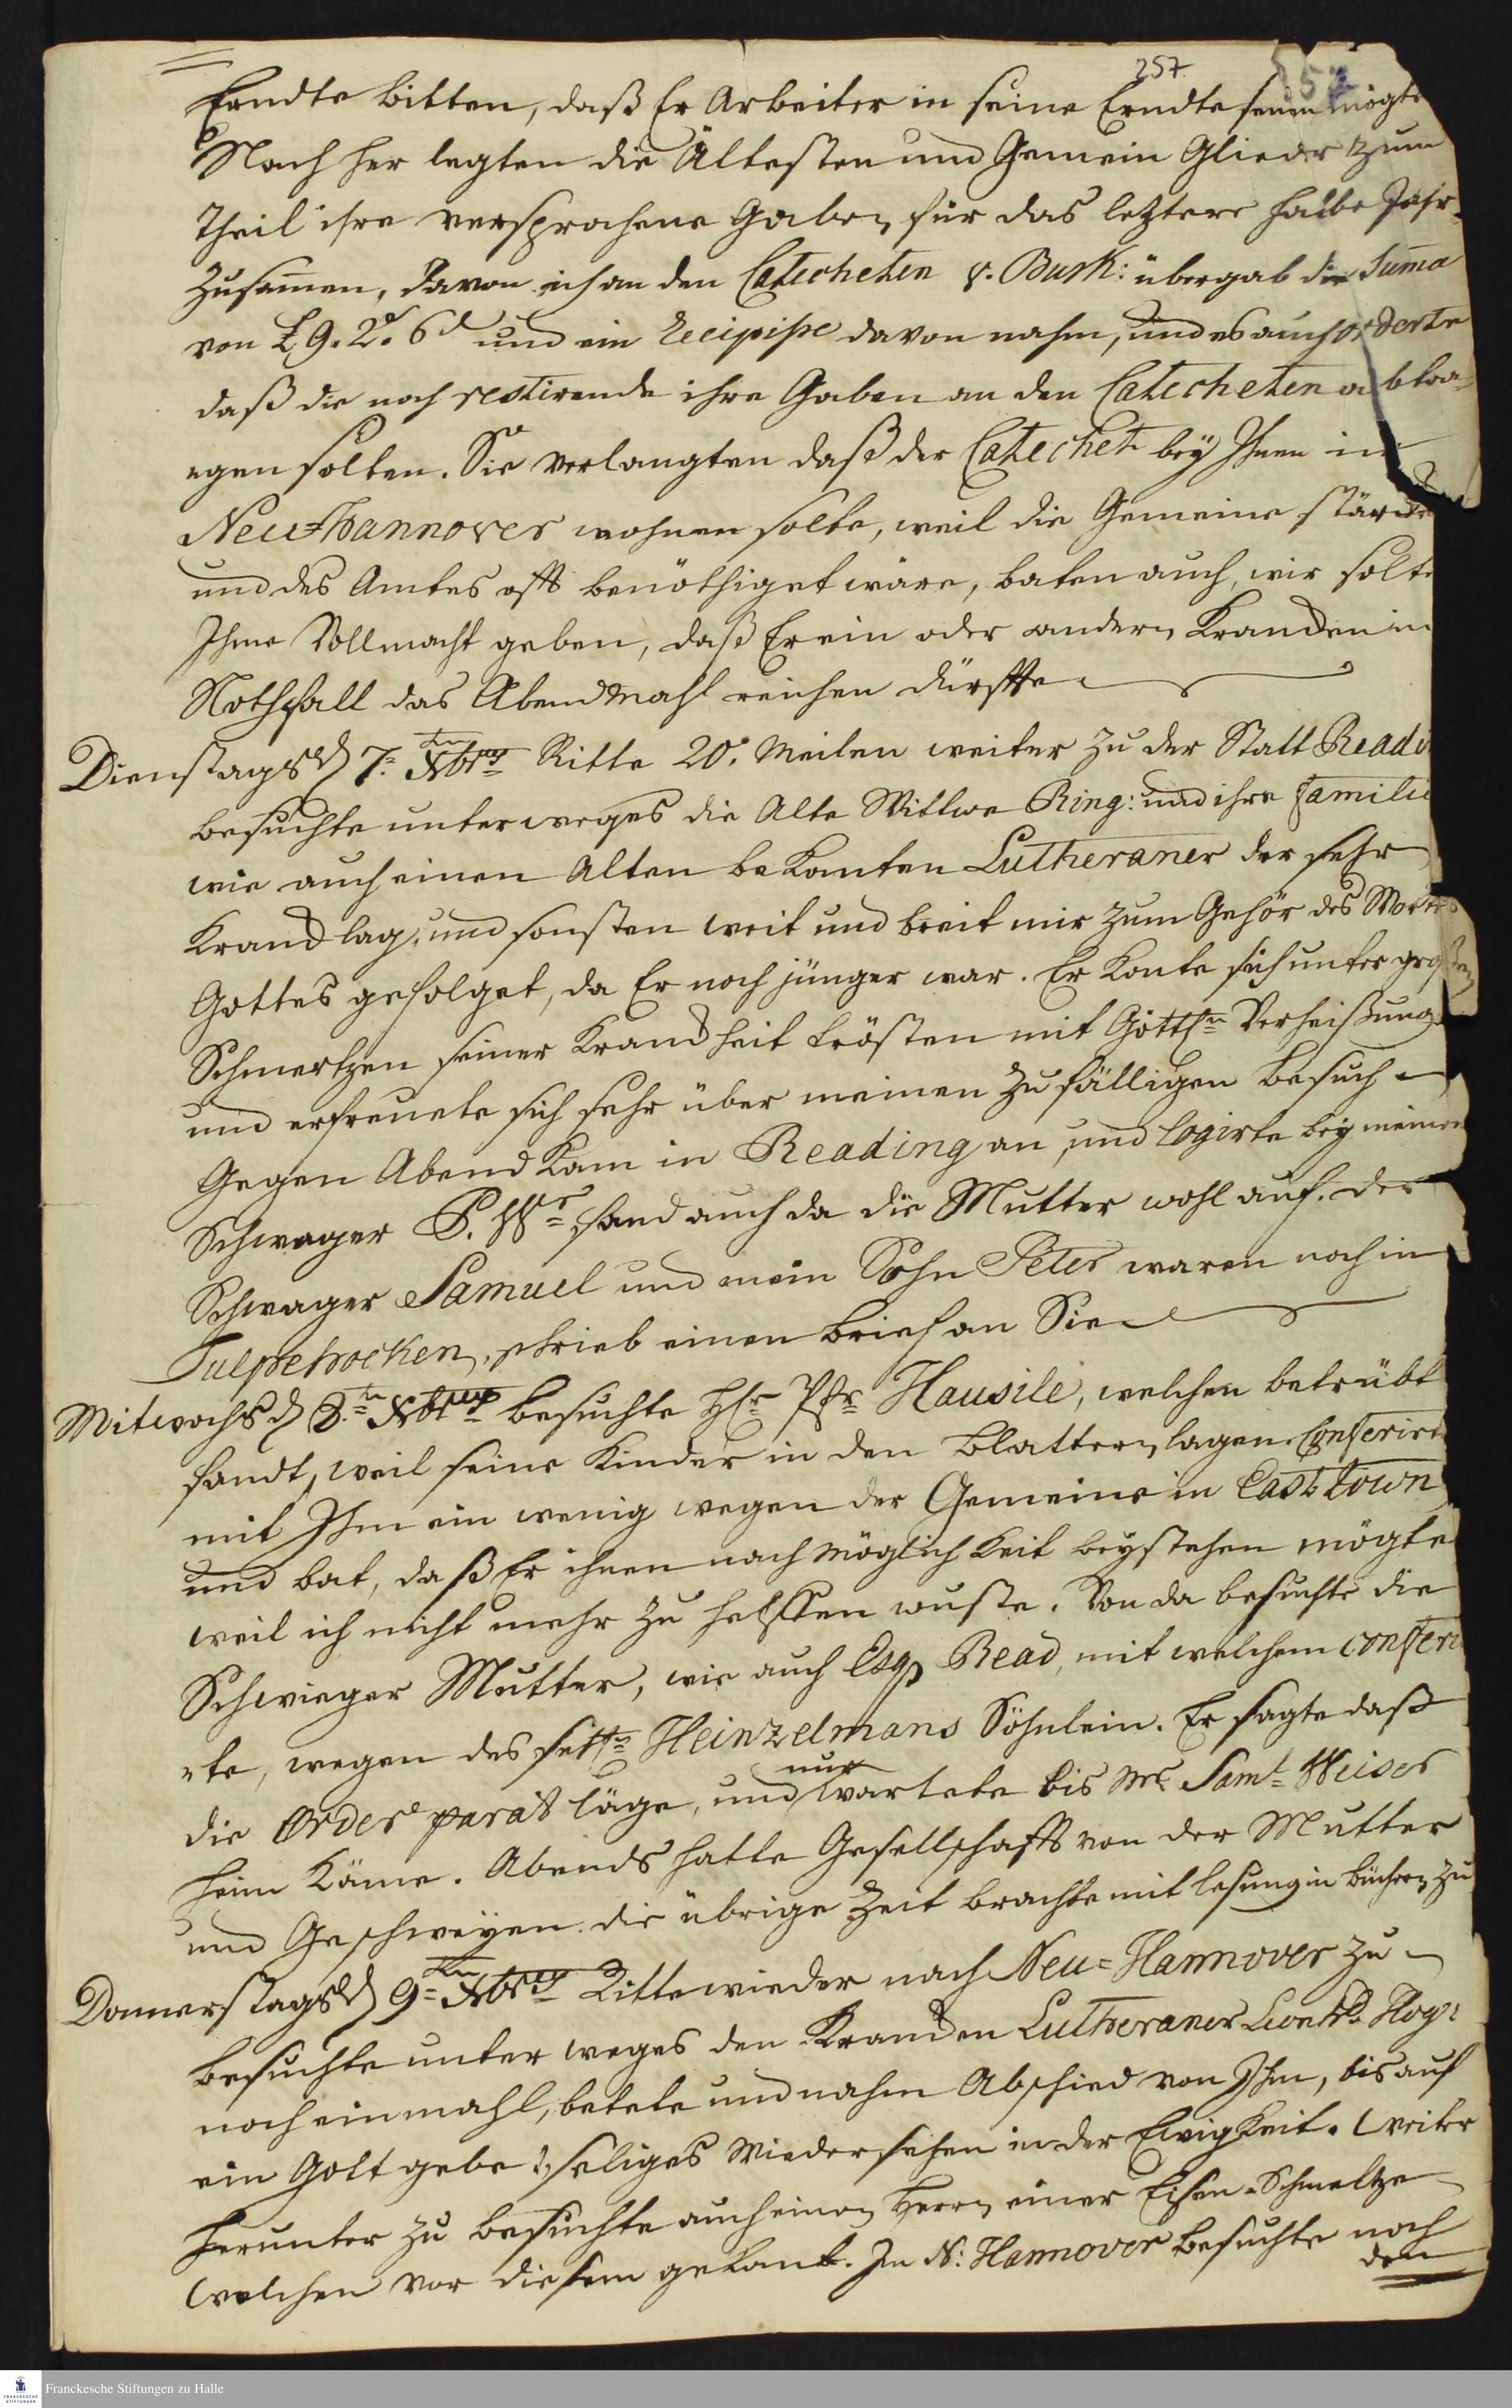 257.
Erndte bitten, daß Er Arbeiter in seine Erndte senden mögte
Nach her legten die Ältesten und Gemein Glieder zum
Theil ihre versprochene Gaben für das letztere halbe Jahr
zusam̄en, davon ich an den Catecheten v. Busk: übergab die Sum̄a
von £ 9. 2s. 6d und ein Recipisse davon nahm, und es auch orderte
daß die noch restirende ihre Gaben an den Catecheten abtra-
gen solten. Sie verlangten daß der Catechet bey Ihnen in
Neu-Hannover wohnen solte, weil die Gemeine stärcker
und des Amtes offt benöthiget wäre, baten auch, wir solte
Ihme Vollmacht geben, daß Er ein oder andern Krancken in
Nothfall das Abendmahl reichen dürffte
Dienstags d 7.ten Xbris Ritte 20. Meilen weiter zu der Statt Readi
besuchte unterweges die Alte Wittwe Ring: und ihre Familie
wie auch einen Alten bekanten Lutheraner der sehr
kranck lag, und sonsten weit und breit mir zum Gehör des Wortes
Gottes gefolget, da Er noch jünger war. Er konte sich unter großen
Schmertzen seiner Kranckheit trösten mit Göttln Verheißung
und erfreuete sich sehr über meinen zufälligen Besuch
Gegen Abend kam in Reading an, und logirte bey meinen
Schwager P. Wr fand auch da die Mutter wohl auf. der
Schwager Samuel und mein Sohn Peter waren noch in
Tulpehocken, schrieb einen Brief an Sie
Mitwochs d 8.ten Xbris besuchte HEr Pfr Hausile, welchen betrübt
fandt, weil seine Kinder in den Blattern lagen. Conferirt
mit Ihm ein wenig wegen der Gemeine in Easttown
und bat, daß Er ihnen nach Möglichkeit beystehen mögte
weil ich nicht mehr zu helffen wuste. Von da besuchte die
Schwieger Mutter, wie auch Esqr Read, mit welchem conferi
rte, wegen des seln Heinzelmans Söhnlein. Er sagte daß
die Order parat läge, und nur wartete bis Mr Saml Weiser
heim käme. Abends hatte Gesellschafft von der Mutter
und Geschweyen. die übrige Zeit brachte mit lesung in Büchern zu
Donnerstags d 9ten Xbris Ritte wieder nach Neu-Hannover zu
besuchte unter weges den Krancken Lutheraner
noch einmahl, betete und nahm Abschied von Ihm, bis auf
ein Gott gebe! seliges Wiedersehen in der Ewigkeit. Weiter
herunter zu besuchte auch einen Herrn einer Eisen-Schmeltze
welchen vor diesem gekant. In N: Hannover besuchte noch
den
Franckesche Stiftungen zu Halle